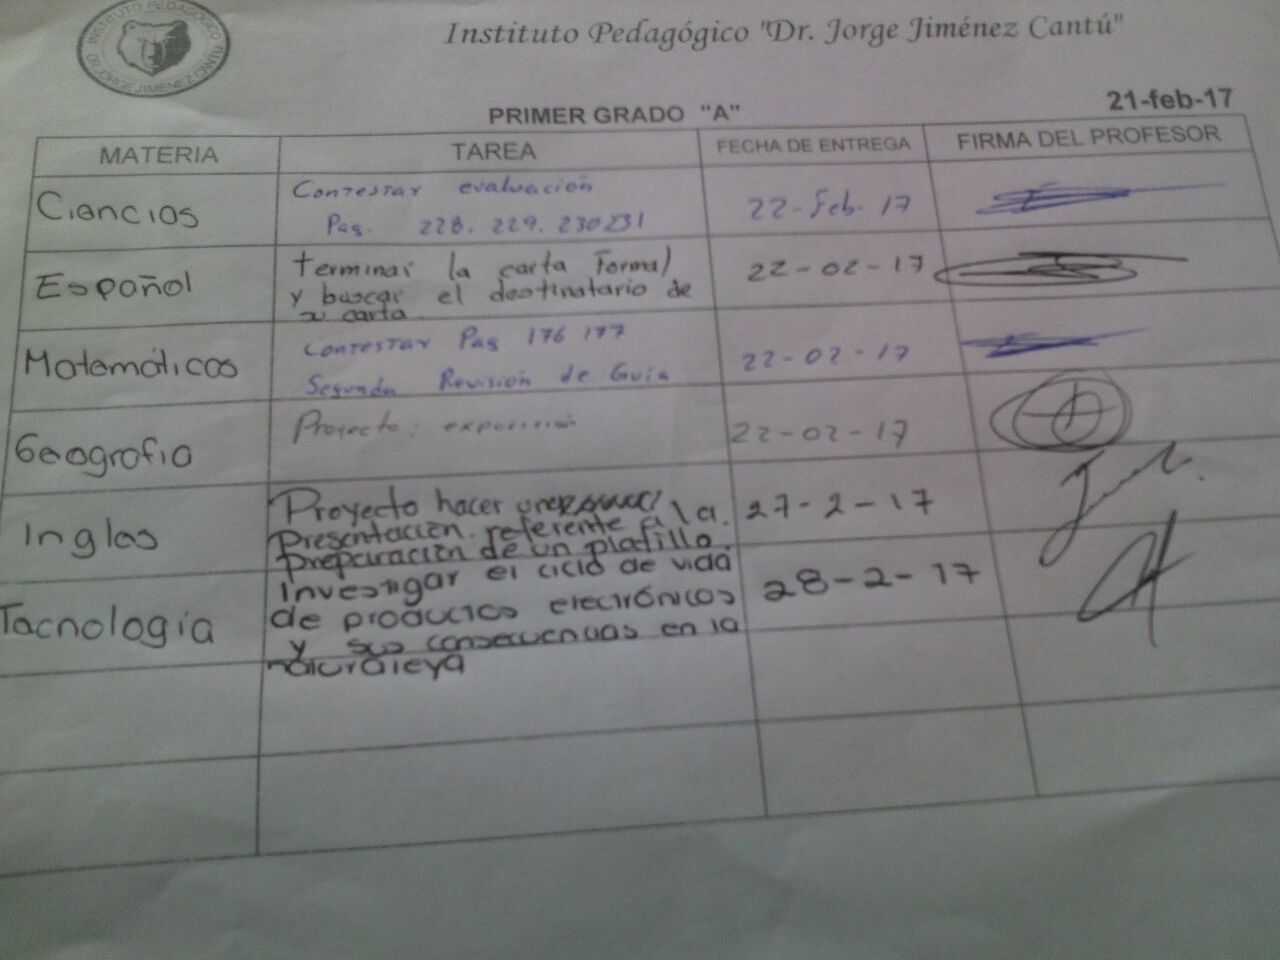 INSTITUTO PEDAGÓGICO
DR. JORGE JIMENEZ CANTÚ
Instituto Pedagógico "Dr. Jorge Jiménez Cantú"
PRIMER GRADO "A"
21-feb-17
MATERIA TAREA FECHA DE ENTREGA FIRMA DEL PROFESOR
Ciencias
Contestar evaluación
Pag. 228. 229. 230 231
22-feb-17
Español
terminar la carta formal
y buscar el destinatario de
su carta
22-02-17
Matemáticas
Contestar Pag 176 177
Segunda Revisión de Guía
22-02-17
Geografia
Proyecto: exposición
22-02-17
Inglas
Proyecto hacer una
presentación. referente a la
preparación de un platillo.
27-2-17
Tacnología
investigar el ciclo de vida
de productos electrónicos
y sus consecuencias en la
naturaleya
28-2-17